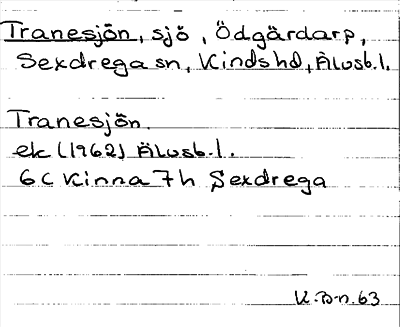 Tranesjön, sjö, Ödgärdarp,
Sexdrega sn, Kinds hd, Älvsb.l.
Tranesjön.
ek (1962) Älvsb.l.
6C Kinna 7h Sexdrega
K.B-n.63